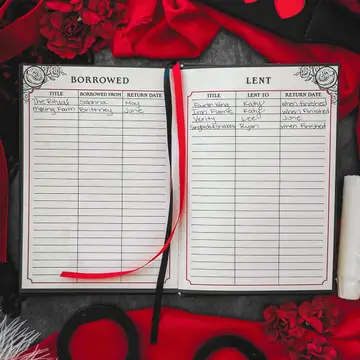 BORROWED
TITLE BORROWED FROM RETURN DATE
The Ritual Salanna May
Brittney June
LENT
TITLE LENT TO RETURN DATE
Fourth Wing Katy when finished
Iron Flame Katy when finished
Verity Lee June
Ryan when finished